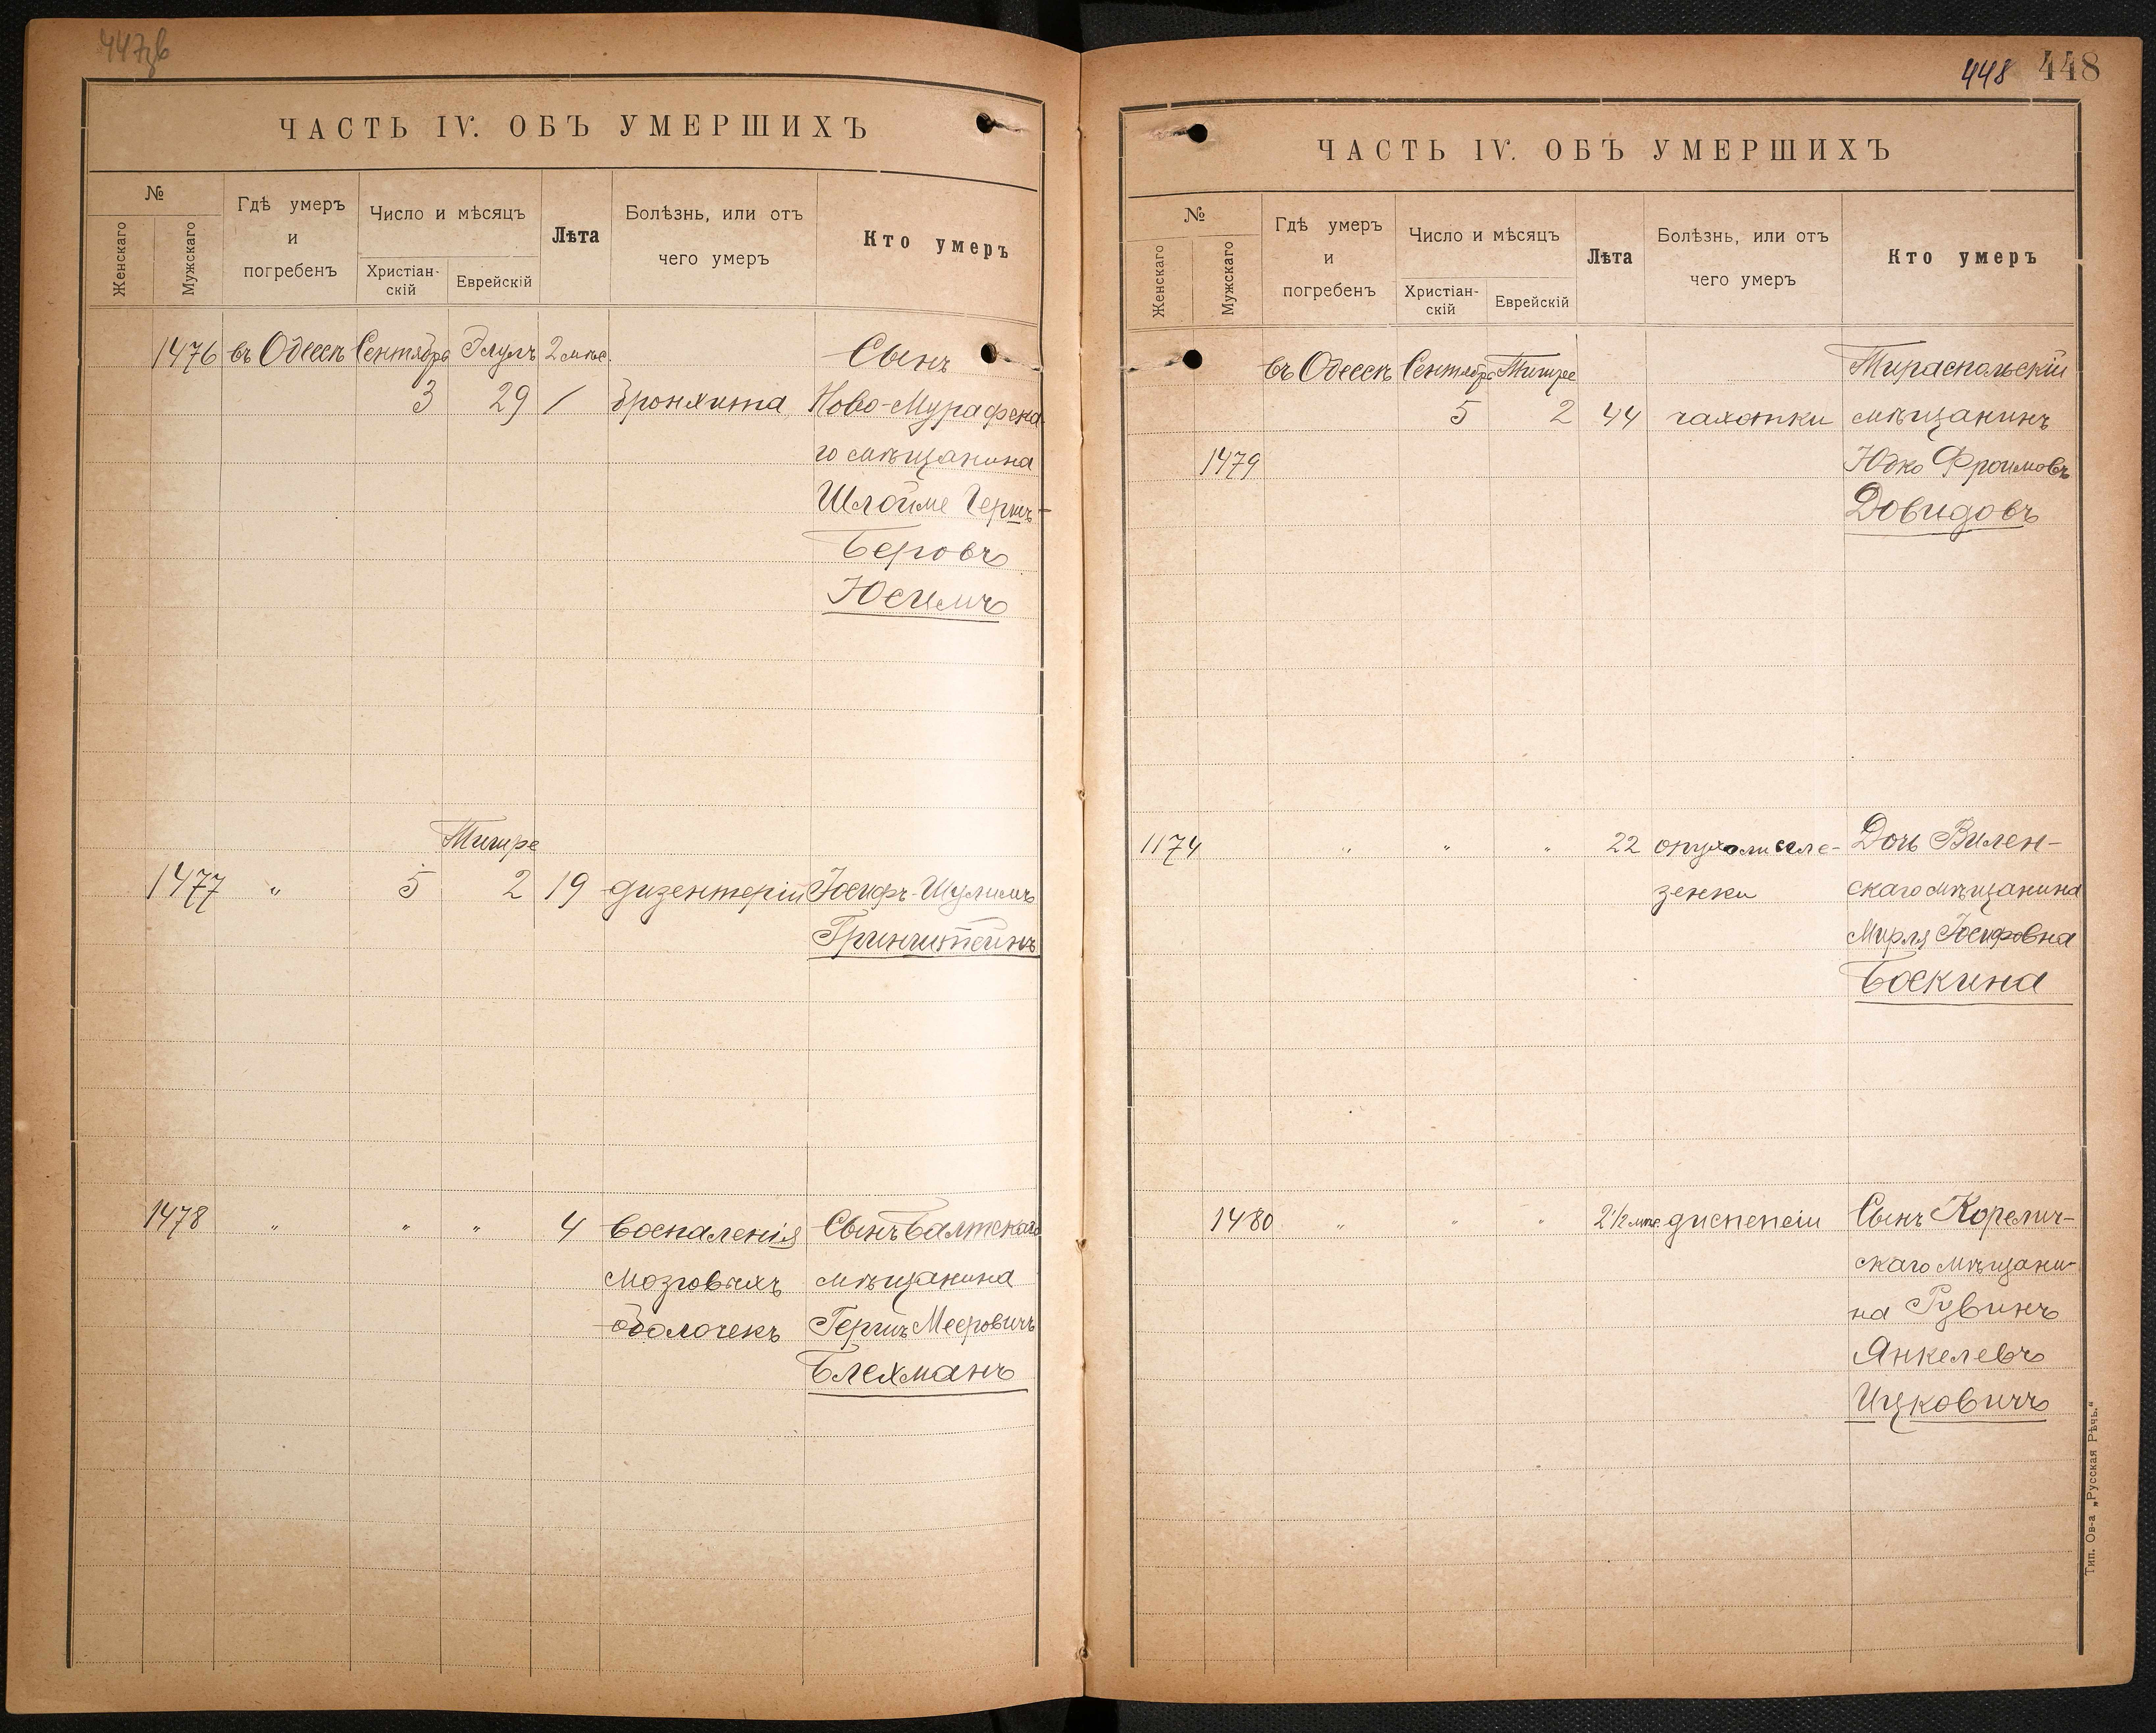 447об
ЧАСТЬ IV. ОБЪ УМЕРШИХЪ
№
Женскаго
Мужскаго
Гдѣ умеръ
и
погребенъ
Число и мѣсяцъ
Христіан-
скій
Еврейскій
Лѣта
Болѣзнь, или отъ
чего умеръ
Кто умеръ
1476 въ Одессѣ Сентябрь Элулъ 2 мѣс. Сынъ
3 29 / бронхита Ново-Мурафска
го мѣщанина
Шлойме Герш-
Беровъ
Юсимъ
Тишре
1477 " 5 2 19 дизентеріи Іосифъ-Шулимъ
Гринштейнъ
1478 " " " 4 воспаленія Сынъ Балтскаго
мозговыхъ мѣщанина
оболочекъ Гершъ Мееровичъ
Блехманъ
448 448
ЧАСТЬ IV. ОБЪ УМЕРШИХЪ
№
Женскаго
Мужскаго
Гдѣ умеръ
и
погребенъ
Число и мѣсяцъ
Христіан-
скій
Еврейскій
Лѣта
Болѣзнь, или отъ
чего умеръ
Кто умеръ
въ Одессѣ Сентябрь Тишре Тираспольскій
5 2 44 чахотки мѣщанинъ
1479 Юдко Фроимовъ
Довидовъ
1174 " " " 22 опухоли селе- Дочь Вилен-
зенки скаго мѣщанина
Мирля Іосифовна
Боскина
1480 " " " 2½ мѣс. диспепсіи Сынъ Корелич-
скаго мѣщани-
на Рувинъ
Янкелевъ
Ицковичъ
Тип. Ов-а „Русская Рѣчь.“